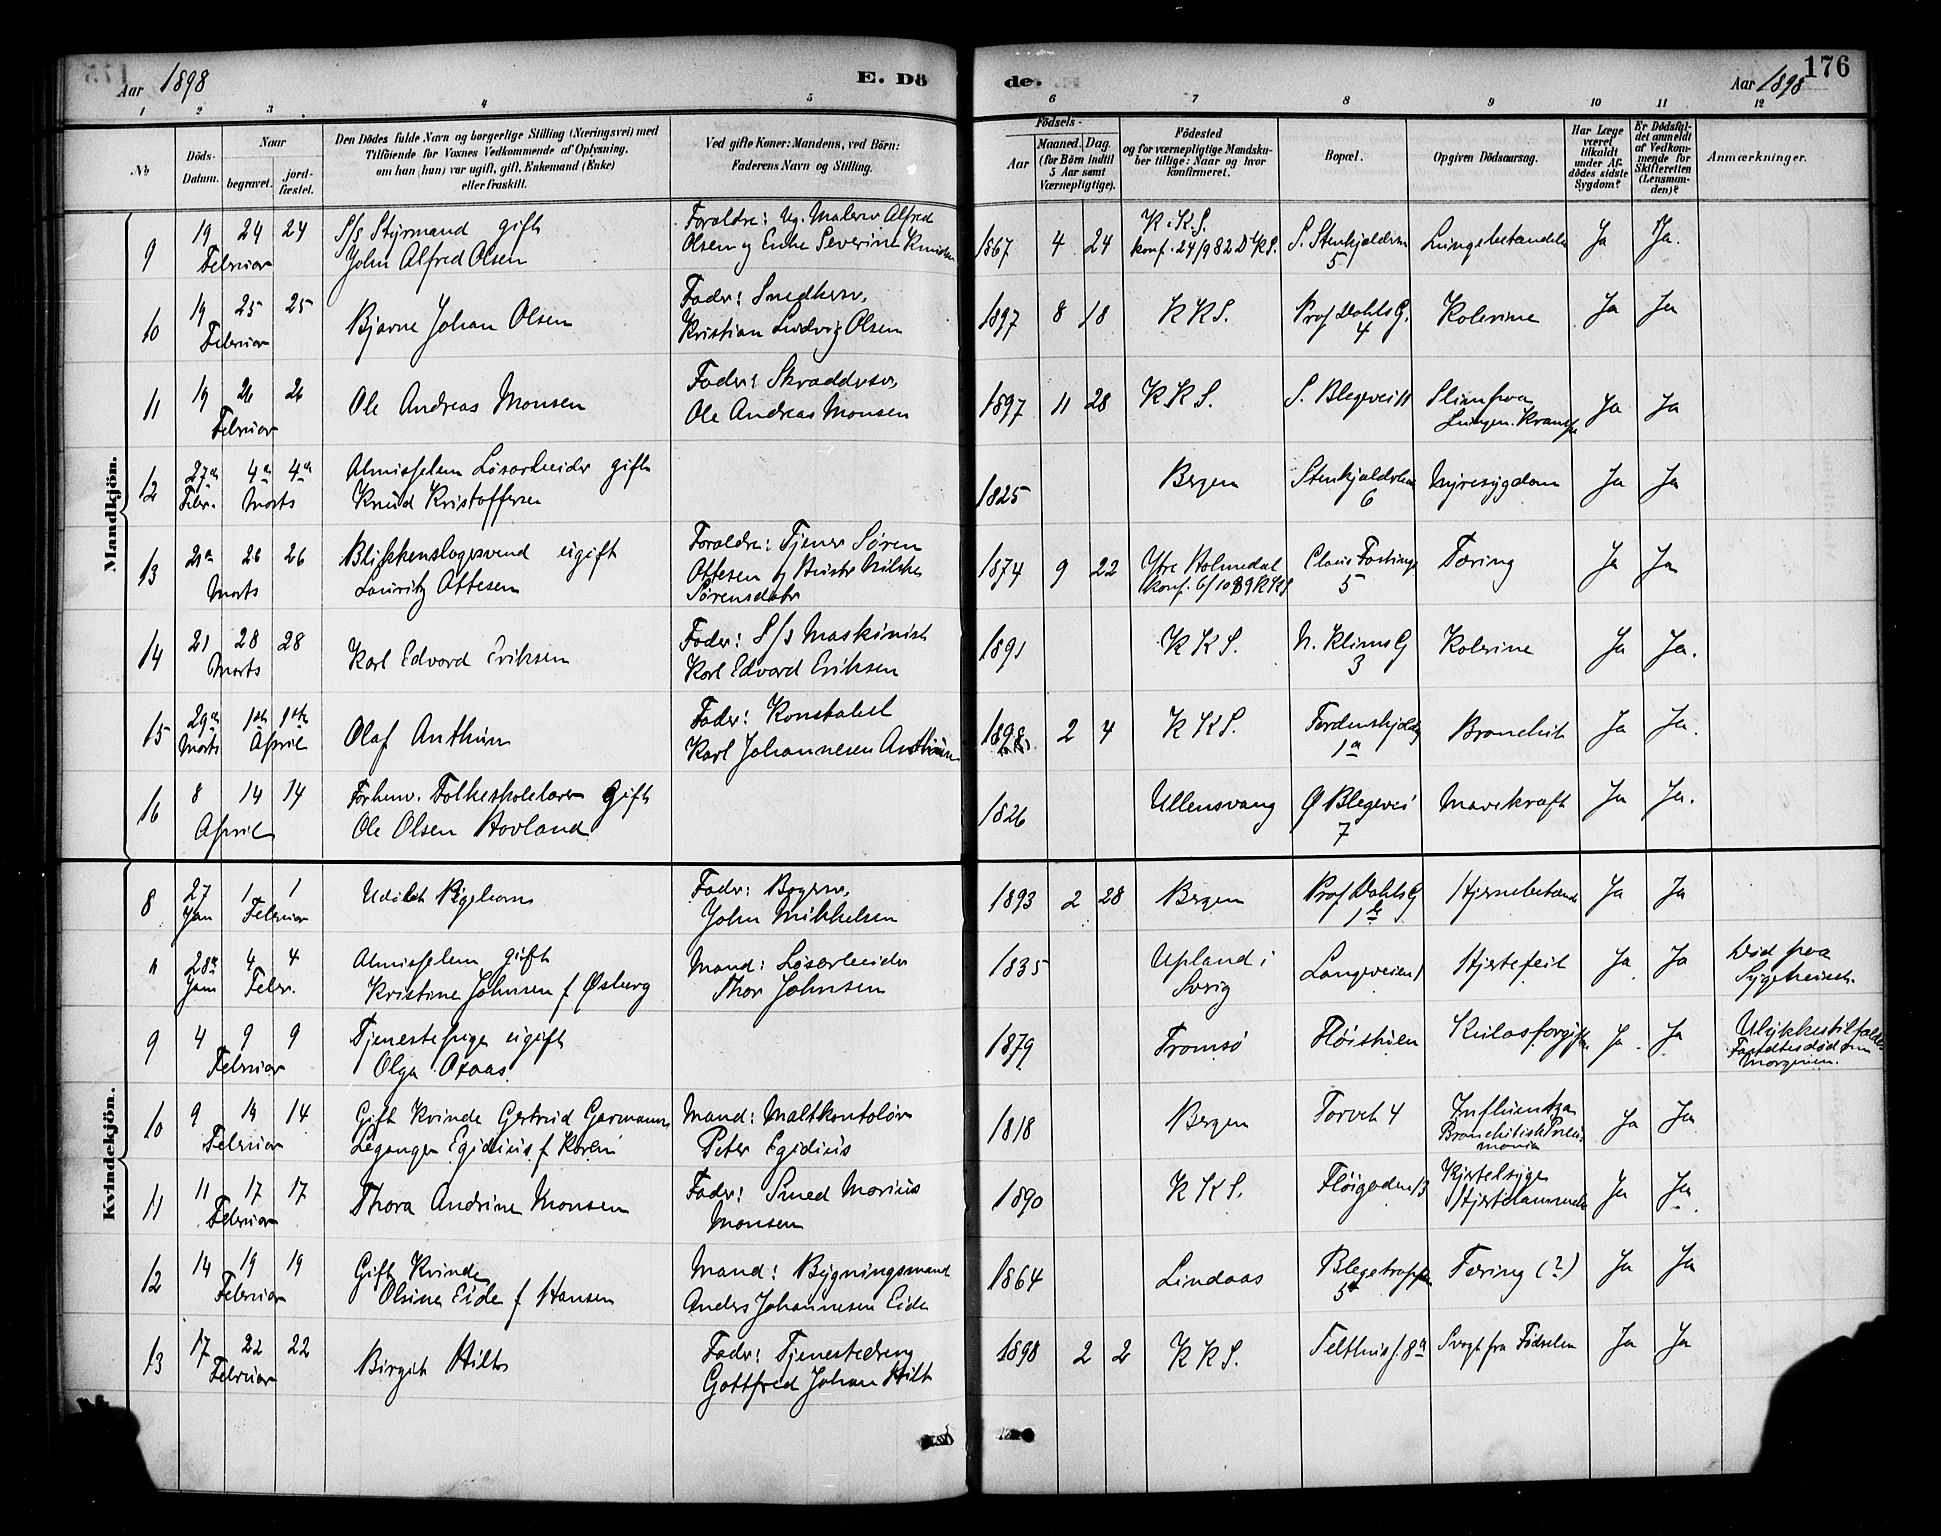 Aar 1898
E. Dö
de.
Aar 1898
176
1 2 3 4 5 6 7 8 9 10 11 12
No
Döds-Datum.
Naar
begravet.
jord-fæstet.
Den Dödes fulde Navn og borgerlige Stilling (Næringsvei) med
Tilföiende for Voxnes Vedkommende af Oplysning.
om han (hun) var ugift, gift, Enkemand (Enke)
eller fraskilt.
Ved gifte Koner: Mandens, ved Börn:
Faderens Navn og Stilling.
Födsels-
Aar
Maaned. Dag.
(for Börn indtil
5 Aar samt
Værnepligtige).
Födested
og for værnepligtige Mandska-
ber tillige: Naar og hvor
konfirmeret.
Bopæl.
Opgiven Dödsaarsag.
Har Læge
været
tilkaldt
under Af-
dödes sidste
Sygdom?
Er Dödsfal-
det anmeldt
af Vedkom-
mende for
Skifteretten
(Lensman-
den)?
Anmærkninger.
Mandkjön.
9 19 24 24 Februar S/s Styrmand gift
John Alfred Olsen
Forældre: Ug. Malersv Alfred
Olsen og Enke Severine Knudsen
1867 4 24 K.K.S.
konf. 24/9 82 D.K.S. S. Stenkjeldersm 5 Lungebetændels Ja Ja.
10 19 25 25 Februar Bjarne Johan Olsen
Fader: Snedkersv.
Kristian Ludvig Olsen
1897 8 18 K K S. Prof Dahls G. 4 Kolerine Ja Ja
11 19 26 26 Februar Ole Andreas Monsen
Fader: Skræddersv.
Ole Andreas Monsen
1897 11 28 K K S. S. Blegevei 11 Slim paa
Lungen. Krampe Ja Ja
12 27de Febr. 4de 4de Marts Almisselem Løsarbeider gift
Knud Kristoffersen
1825 Bergen Stenkjelderbm 6 Nyresygdom Ja Ja
13 21de 26 26 Marts Blikkenslagersvend ugift
Lauritz Ottesen
Forældre: Tjener Søren
Ottesen og Hustr Milkha
Sørensdatr
1874 9 22 Ytre Holmedal
konf. 6/10 89 K K S Claus Fastings 5 Tæring Ja Ja
14 21 28 28 Marts Karl Edvard Eriksen
Fader: S/s Maskinist
Karl Edvard Eriksen
1891 K K S. N. Klims G 3 Kolerine Ja Ja.
15 29de Marts 1ste 1ste April Olaf Anthun
Fader: Konstabel
Karl Johannesen Anthun
1898 2 4 K K S. Tordenskjoldsg 1a Bronchit Ja Ja.
16 8 14 14 April Forhenv. Folkeskolelærer Gift
Ole Olsen Hovland
1826 Ullensvang Ø Blegevei 7 Mavekræft Ja Ja.
Kvindekjön.
8 27 Jan 1 1 Februar
Fader: Bagersv.
John Mikkelsen
1893 2 28 Bergen Prof Dahls G 1b Hjernebetænde Ja Ja
" 28de Jan 4 4 Febr. Almisselem gift
Kristine Johnsen f Øsberg
Mand: Løsarbeider
Thor Johnsen
1835 Upland i
Sverig Langeveien 1 Hjertefeil Ja Ja Død paa
Sygehuset.
9 4 9 9 Februar Tjenestepige ugift
Olga Osaas
1879 Tromsö Fløistuen Kulosforgiftn. Ja Ja Ulykkestilfælde
Fandtes død om
Morgenen.
10 9 14 14 Februar Gift Kvinde Gertrud Garmann
Leganger Egidius f Koren
Mand: Maltkontolør
Peter Egidius
1818 Bergen Torvet 4 Influentza
Bronchitisk Pneu-
monia Ja Ja
11 11 17 17 Februar Thora Andrine Monsen
Fader: Smed Marius
Monsen
1890 K K S. Fløigaden 13 Kjertelsyge
Hjertelammelse Ja Ja.
12 14 19 19 Februar Gift Kvinde
Olsine Eide f Hansen
Mand: Bygningsmand
Anders Johannesen Eide
1864 Lindaas Blegetrappen 5 Tæring (?) Ja Ja
13 17 22 22 Februar Birgit Hilt
Fader: Tjenestedreng
Gottfred Johan Hilt
1898 2 2 K K S. Telthusg. 8a Svagt fra Fødselen Ja Ja